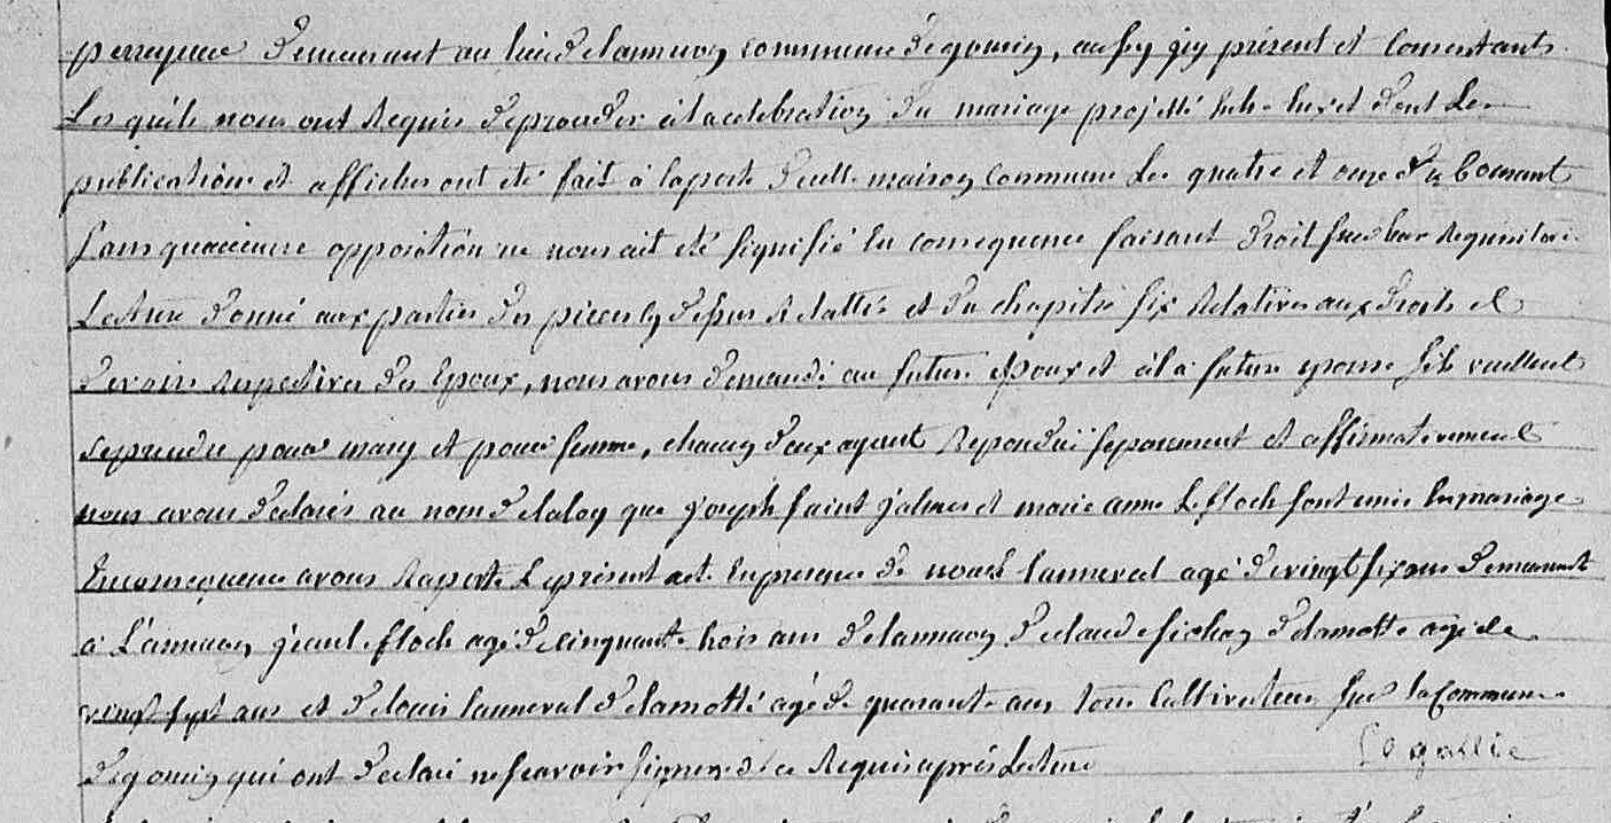 demeurant au lieu de lannuon commune degomin, aussy jcy présent et Consentants
Lesquels nous ont Requis deproceder à lacelebration du mariage projetté entre eux et dont Les
publications et affiches ont été fait à laporte decette maison Commune Les quatre et onze du Courant
Sans quaucune opposition ne nous ait été signifié En consequence faisant droit sur leur Requisitoire
Lecture donné aux parties des pieces cy dessus Relattés et du chapitre six Relatives aux droits et
devoirs Respectives des Epoux, nous avons demandé au future Epoux et à la future epouse s'ils veullent
seprendre pour mary et pour femme, chacun deux ayant Repondu séparement et affirmativement
nous avons declarés au nom delaloy que joseph saint jalmes et marie anne Lefloch sont unis En mariage
En consequence avons Raporté Le présent acte En presence de nouel Lanneval agé devingt six ans demeurant
à Lannuon jean Lefloch agé de cinquante trois ans de lannuon declaude fichan delamotte agé de
vingt sept ans et delouis Lanneval de lamotte agé de quarante ans tous Cultivateurs sur la Commune
degomin qui ont declaré ne scavoir signer de ce Requis après Lecture